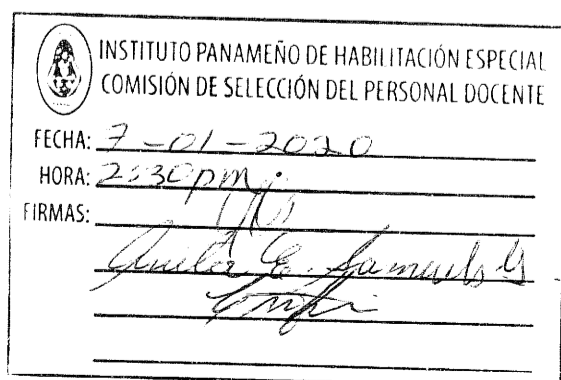 INSTITUTO PANAMEÑO DE HABILITACIÓN ESPECIAL
COMISIÓN DE SELECCIÓN DEL PERSONAL DOCENTE
FECHA: 7-01-2020
HORA: 2:30pm
FIRMAS:
E. Samuels G